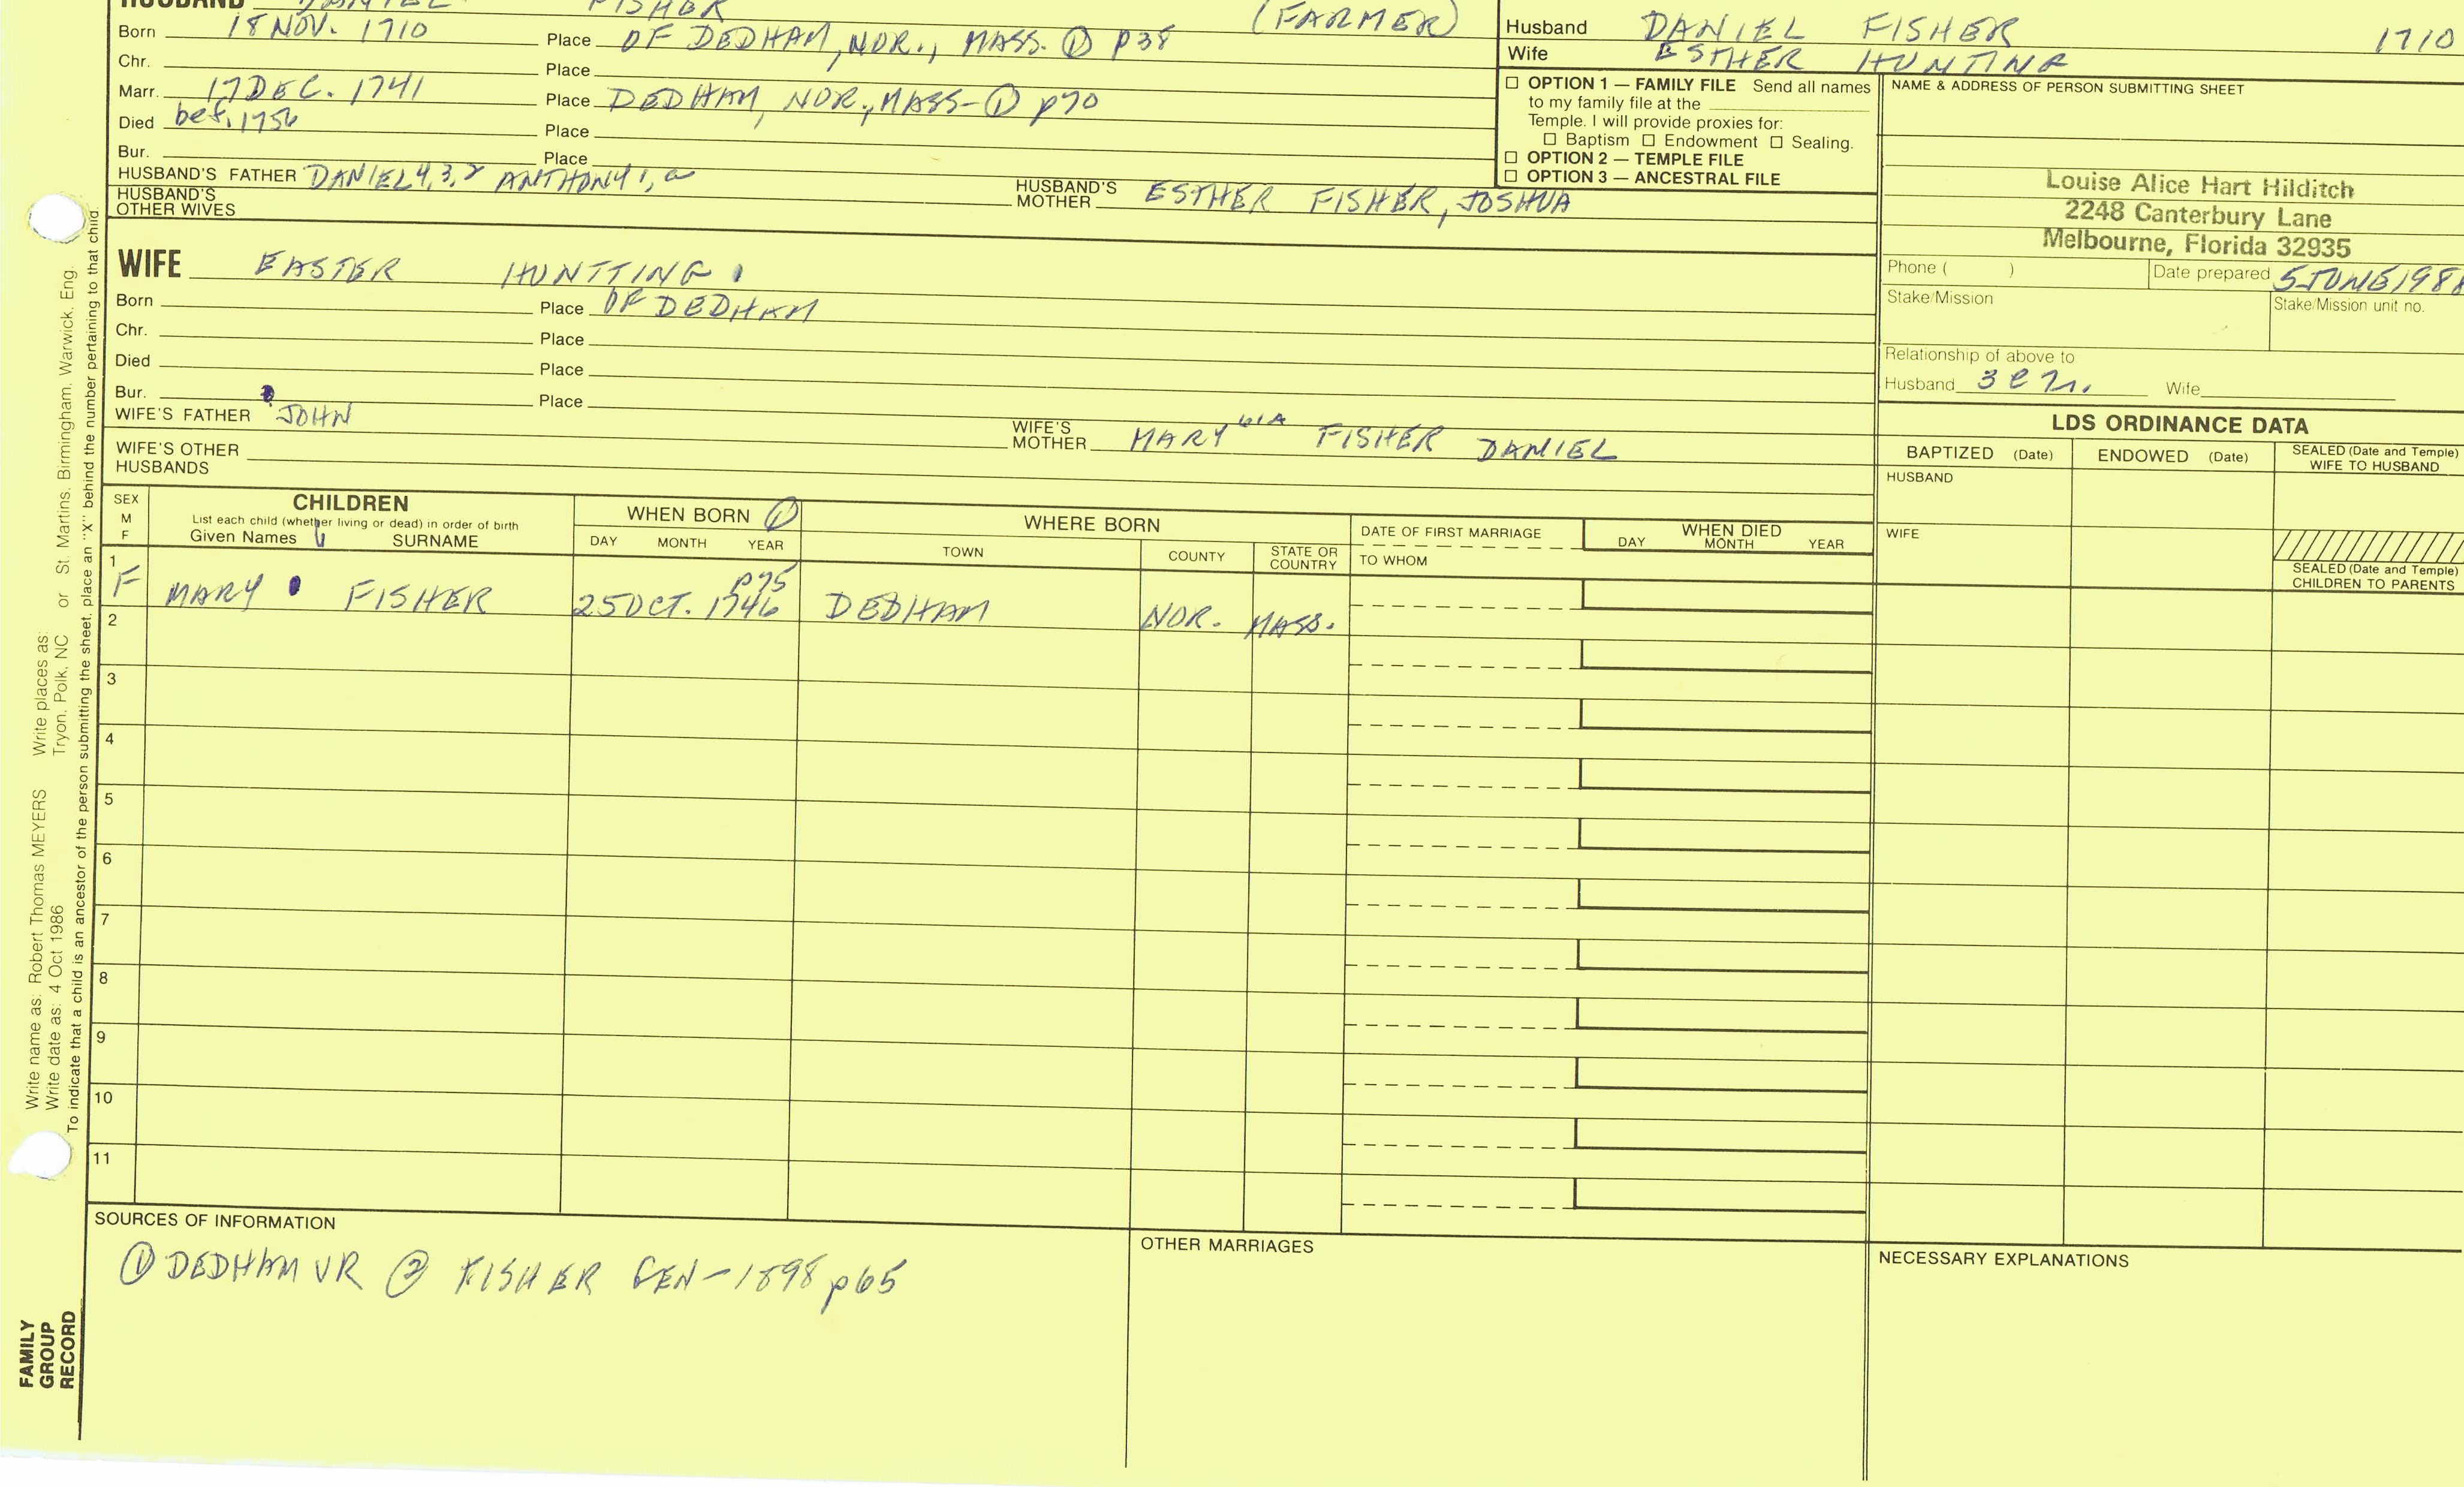 HUSBAND DANIEL FISHER (FARMER)
Born 18 NOV. 1710 Place OF DEDHAM, NOR., MASS. ① P38
Chr. Place
Marr. 17 DEC. 1741 Place DEDHAM, NOR., MASS- ① p70
Died bef. 1756 Place
Bur. Place
HUSBAND'S FATHER DANIEL 4,3,2 ANTHONY 1, a HUSBAND'S MOTHER ESTHER FISHER, JOSHUA
HUSBAND'S OTHER WIVES
WIFE EASTER HUNTTING
Born Place OF DEDHAM
Chr. Place
Died Place
Bur. Place
WIFE'S FATHER JOHN WIFE'S MOTHER MARY 61A FISHER DANIEL
WIFE'S OTHER HUSBANDS
Husband DANIEL FISHER 1710
Wife ESTHER HUNTING
☐ OPTION 1 — FAMILY FILE Send all names
to my family file at the
Temple. I will provide proxies for:
☐ Baptism ☐ Endowment ☐ Sealing.
☐ OPTION 2 — TEMPLE FILE
☐ OPTION 3 — ANCESTRAL FILE
NAME & ADDRESS OF PERSON SUBMITTING SHEET
Louise Alice Hart Hilditch
2248 Canterbury Lane
Melbourne, Florida 32935
Phone ( ) Date prepared 5 JUNE 198
Stake/Mission Stake/Mission unit no.
Relationship of above to
Husband Wife
LDS ORDINANCE DATA
BAPTIZED (Date) ENDOWED (Date) SEALED (Date and Temple) WIFE TO HUSBAND
HUSBAND
WIFE
SEALED (Date and Temple) CHILDREN TO PARENTS
SEX M F
CHILDREN
List each child (whether living or dead) in order of birth
Given Names SURNAME
WHEN BORN ①
DAY MONTH YEAR
WHERE BORN
TOWN COUNTY STATE OR COUNTRY
DATE OF FIRST MARRIAGE
TO WHOM
WHEN DIED
DAY MONTH YEAR
1 F MARY FISHER 25 OCT. 1746 p75 DEDHAM NOR. MASS.
2
3
4
5
6
7
8
9
10
11
SOURCES OF INFORMATION
① DEDHAM VR ② FISHER GEN-1898 p65
OTHER MARRIAGES
NECESSARY EXPLANATIONS
Write name as: Robert Thomas MEYERS Write places as: St. Martins, Birmingham, Warwick, Eng.
Write date as: 4 Oct 1986 Tryon, Polk, NC or
To indicate that a child is an ancestor of the person submitting the sheet, place an "X" behind the number pertaining to that child.
FAMILY
GROUP
RECORD